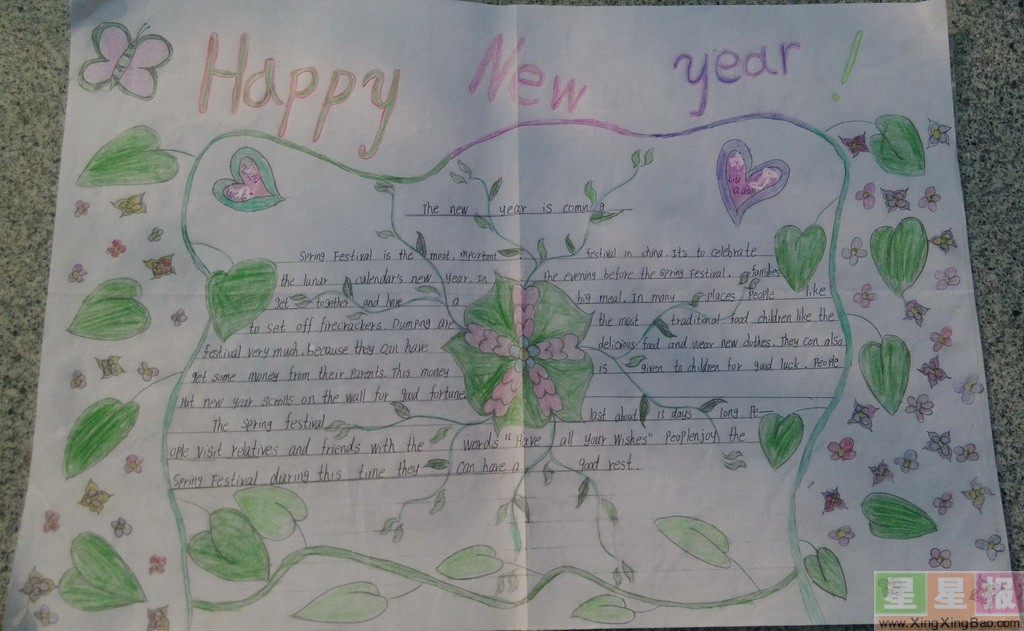 Happy New year !
Liu Quan
The new year is coming
Spring Festival is the most important festival in china. It's to celebrate
the lunar calendar's new year. In the evening before the Spring Festival. families
get together and have a big meal. In many places people like
to set off firecrackers. Dumping are the most traditional food children like the
festival very much. because they can have delicious food and wear new clothes. They can also
get some money from their parents. This money is given to children for good luck. People
put new year scrolls on the wall for good fortune
The spring festival last about 15 days long. Pe-
ople visit relatives and friends with the words "Have all your wishes" Peoplenjoy the
Spring Festival during this time they can have a good rest.
星星报
www.XingXingBao.com